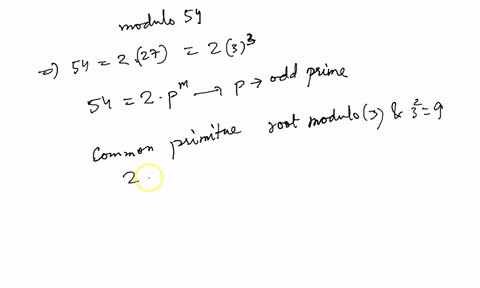 modulo 54
=> 54 = 2.(27) = 2(3)^3
54 = 2.p^m → p → odd prime
Common primitue root modulo(3) & 3^2=9
2.